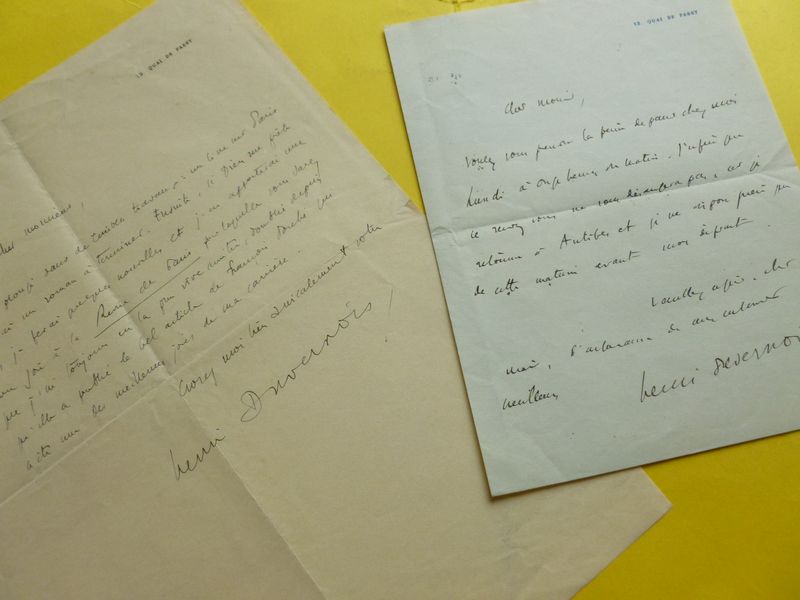 12 QUAI DE PASSY
Cher monsieur,
plongé dans de travaux : un livre sur Paris
un roman à terminer. Ensuite, si Dieu me prête
je ferai quelques nouvelles et j'en apporterai une
à la Revue de Paris pour laquelle vous savez
que j'ai toujours eu la plus vive amitié, doublée depuis
qu'elle a publié le bel article de François Porché qui
a été une des meilleures joies de ma carrière.
Croyez moi bien amicalement à vous
Henri Duvernois
12 QUAI DE PASSY
Cher monsieur,
Voulez vous prendre la peine de passer chez moi
lundi à onze heures du matin. J'espère que
ce rendez vous ne vous dérangera pas, car je
retourne à Antibes et je ne dispose guère que
de cette matinée avant mon départ.
Veuillez agréer, cher
l'assurance de mes sentiments
meilleurs
Henri Duvernois